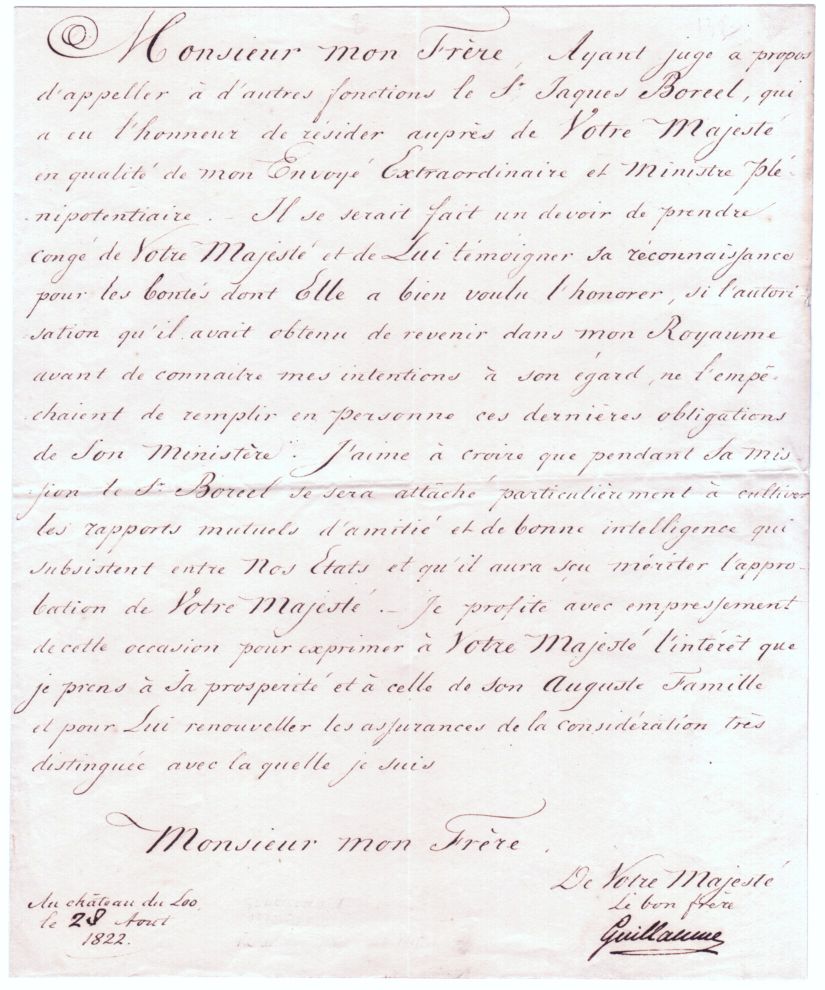 Monsieur mon Frère, Ayant jugé a propos
d'appeller à d'autres fonctions le Sr Jaques Boreel, qui
a eu l'honneur de résider auprès de Votre Majesté
en qualité de mon Envoyé Extraordinaire et Ministre Plé-
nipotentiaire. – Il se serait fait un devoir de prendre
congé de Votre Majesté et de Lui témoigner sa réconnaissance
pour les bontés dont Elle a bien voulu l'honorer, si l'autori-
sation qu'il avait obtenu de revenir dans mon Royaume
avant de connaitre mes intentions à son égard, ne l'empê-
chaient de remplir en personne ces dernières obligations
de Son Ministère. J'aime à croire que pendant Sa mis-
sion le Sr Boreel se sera attâché particulièrement à cultiver
les rapports mutuels d'amitié et de bonne intelligence qui
subsistent entre Nos Etats et qu'il aura sçu mériter l'appro-
bation de Votre Majesté. – Je profite avec empressement
de cette occasion pour exprimer à Votre Majesté l'intérêt que
je prens à Sa prosperité et à celle de Son Auguste Famille
et pour Lui renouveller les assurances de la considération très
distinguée avec la quelle je suis
Monsieur mon Frère.
De Votre Majesté
Le bon frère
Guillaume
Au château du Loo
le 28 Aout
1822.